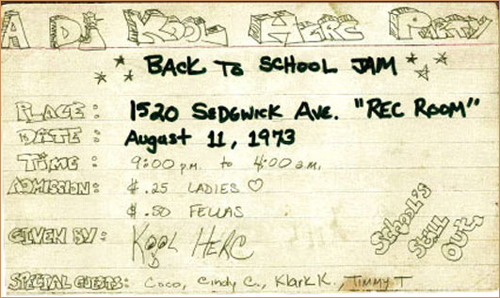 A DJ KOOL HERC PARTY
BACK TO SCHOOL JAM
PLACE: 1520 SEDGWICK AVE. "REC ROOM"
DATE: August 11, 1973
TIME: 9:00 p.m. to 4:00 a.m.
ADMISSION: $.25 LADIES ♡
$.50 FELLAS
GIVEN BY: KOOL HERC
SCHOOL'S
STILL
OUT!
SPECIAL GUESTS: Coco, Cindy C., Klark K., TIMMY T